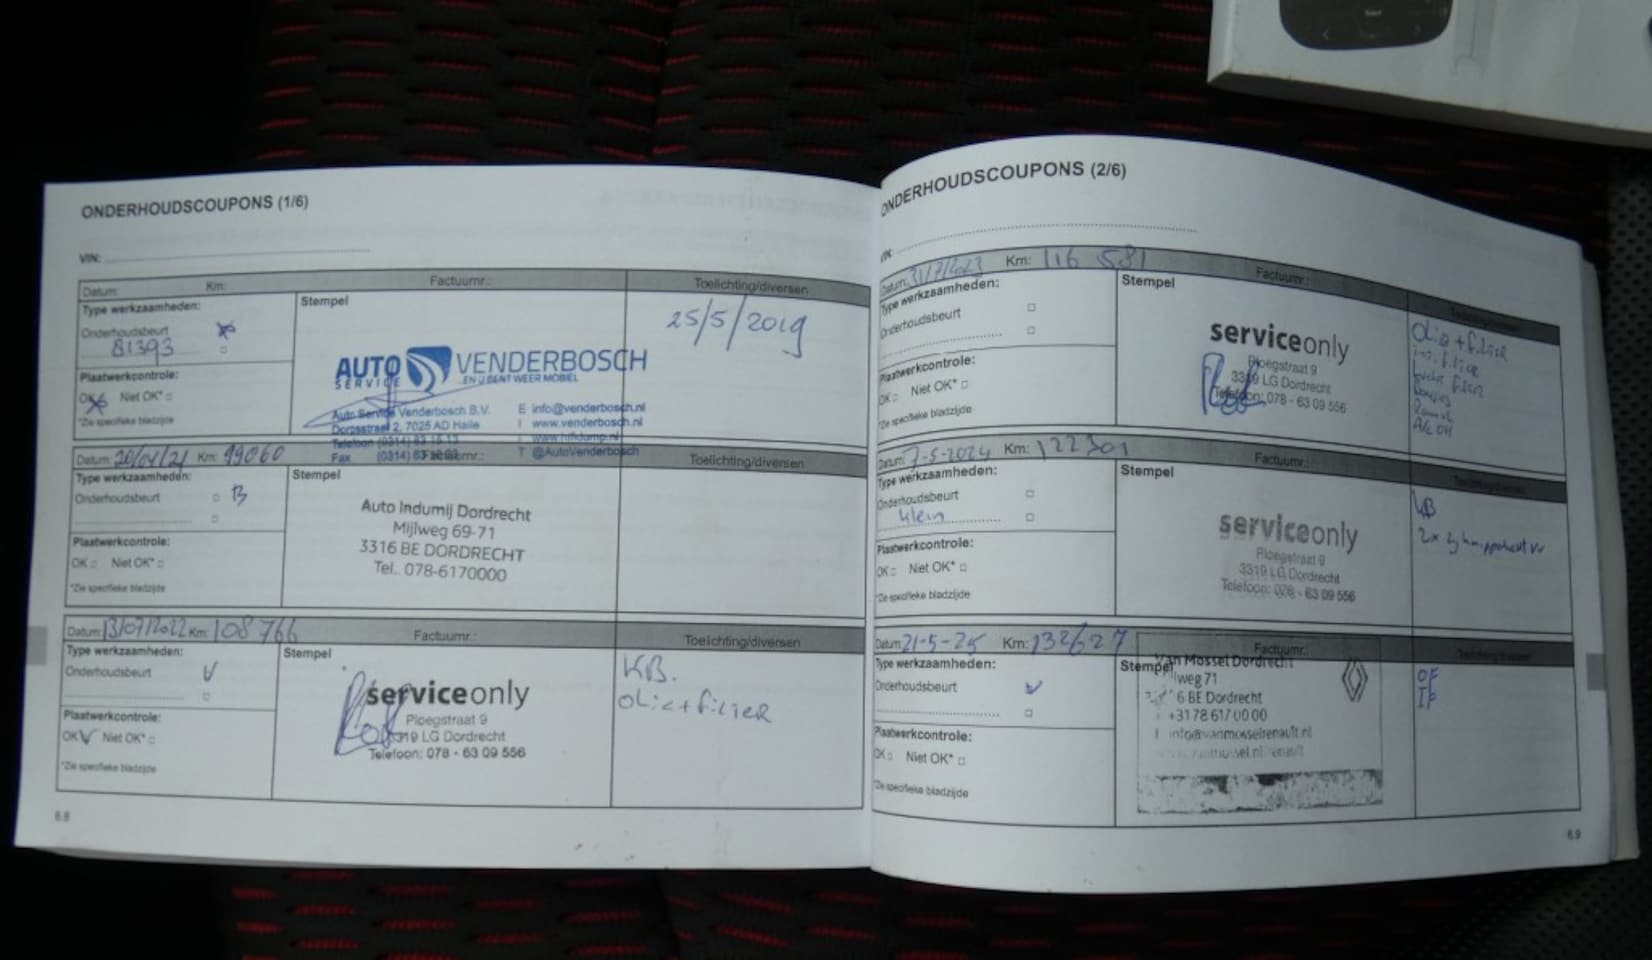 ONDERHOUDSCOUPONS (1/6)
VIN:
Datum: Km: Factuurnr.: Toelichting/diversen
Type werkzaamheden:
Onderhoudsbeurt
81393
Plaatwerkcontrole:
OK Niet OK*
*Zie specifieke bladzijde
Stempel
AUTO SERVICE VENDERBOSCH
...EN U BENT WEER MOBIEL
Auto Service Venderbosch B.V.
Dorpsstraat 2, 7025 AD Halle
Telefoon (0314) 63 15 13
Fax (0314) 63
E info@venderbosch.nl
I www.venderbosch.nl
I www.hifidump.nl
T @AutoVenderbosch
25/5/2019
Datum: 20/04/21 Km: 99060 Factuurnr.: Toelichting/diversen
Type werkzaamheden:
Onderhoudsbeurt B
Plaatwerkcontrole:
OK Niet OK*
*Zie specifieke bladzijde
Stempel
Auto Indumij Dordrecht
Mijlweg 69-71
3316 BE DORDRECHT
Tel.. 078-6170000
Datum: 13/07/2022 Km: 108766 Factuurnr.: Toelichting/diversen
Type werkzaamheden:
Onderhoudsbeurt
Plaatwerkcontrole:
OK Niet OK*
*Zie specifieke bladzijde
Stempel
serviceonly
Ploegstraat 9
3319 LG Dordrecht
Telefoon: 078 - 63 09 556
KB.
olie+filter
6.8
ONDERHOUDSCOUPONS (2/6)
VIN:
Datum: 31/7/2023 Km: 116 581 Factuurnr.:
Type werkzaamheden:
Onderhoudsbeurt
Plaatwerkcontrole:
OK Niet OK*
*Zie specifieke bladzijde
Stempel
serviceonly
Ploegstraat 9
3319 LG Dordrecht
Telefoon: 078 - 63 09 556
olie + filter
int. filter
lucht filter
Datum: 7-5-2024 Km: 122301 Factuurnr.:
Type werkzaamheden:
Onderhoudsbeurt
klein
Plaatwerkcontrole:
OK Niet OK*
*Zie specifieke bladzijde
Stempel
serviceonly
Ploegstraat 9
3319 LG Dordrecht
Telefoon: 078 - 63 09 556
KB
2x
Datum: 21-5-25 Km: 132627 Factuurnr.:
Type werkzaamheden:
Onderhoudsbeurt
Plaatwerkcontrole:
OK Niet OK*
*Zie specifieke bladzijde
Stempel
Van Mossel Dordrecht
lweg 71
6 BE Dordrecht
+31 78 617 00 00
info@vanmosselrenault.nl
OF
IF
6.9